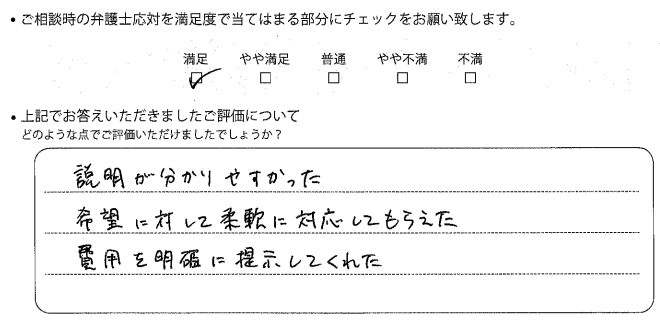 • ご相談時の弁護士応対を満足度で当てはまる部分にチェックをお願い致します。
満足 やや満足 普通 やや不満 不満
• 上記でお答えいただきましたご評価について
どのような点でご評価いただけましたでしょうか？
説明が分かりやすかった
希望に対して柔軟に対応してもらえた
費用を明確に提示してくれた